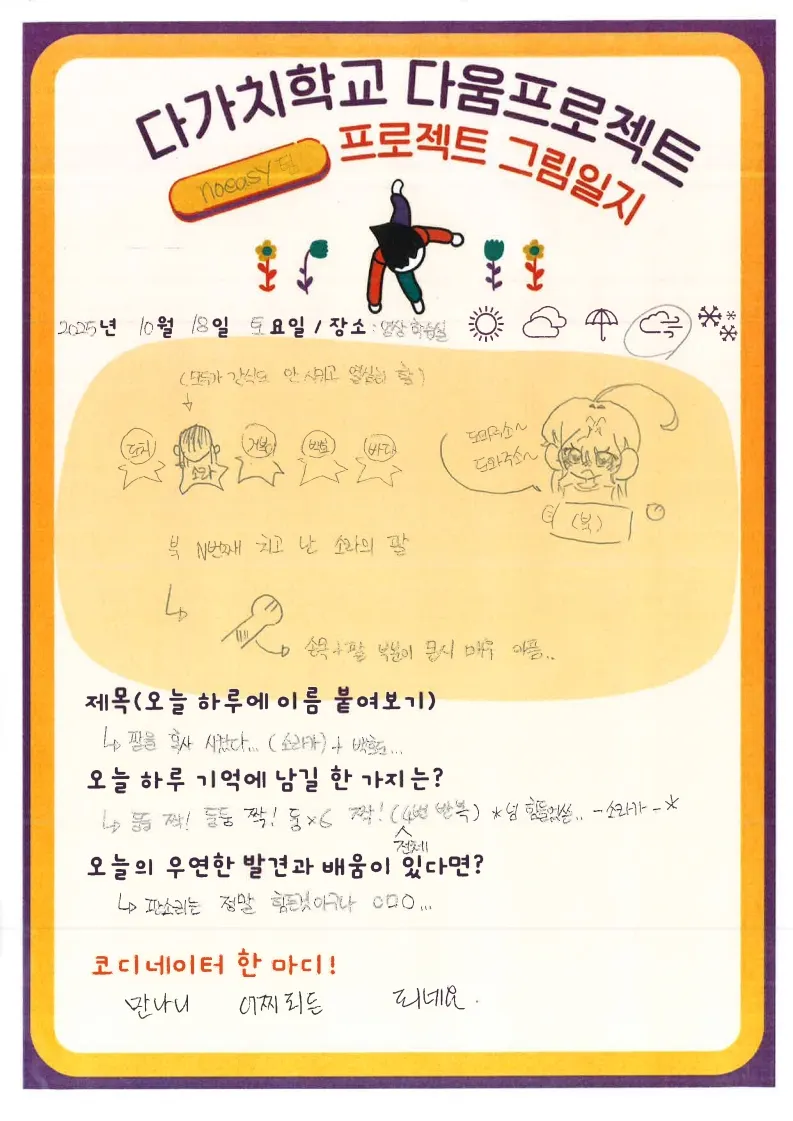 다가치학교 다움프로젝트
프로젝트 그림일지
noeasy 팀
2025년 10월 18일 토요일 / 장소 : 영상 학습실
(모두가 간식도 안 시키고 열심히 함)
도치 소라 거북 백호 바다
도와주소~
도와주소~
(북)
북 N번째 치고 난 소라의 팔
손목+팔 부분이 몹시 매우 아픔..
제목(오늘 하루에 이름 붙여보기)
팔을 혹사 시켰다... (소라가) + 백호도...
오늘 하루 기억에 남길 한 가지는?
둠둠 짝! 둠둠 짝! 둥×6 짝! (4번 반복) *넘 힘들었쓰.. -소라가-*
전체
오늘의 우연한 발견과 배움이 있다면?
판소리는 정말 힘든것이구나 ㅇㅁㅇ...
코디네이터 한 마디!
만나니 어찌되든 되네요.